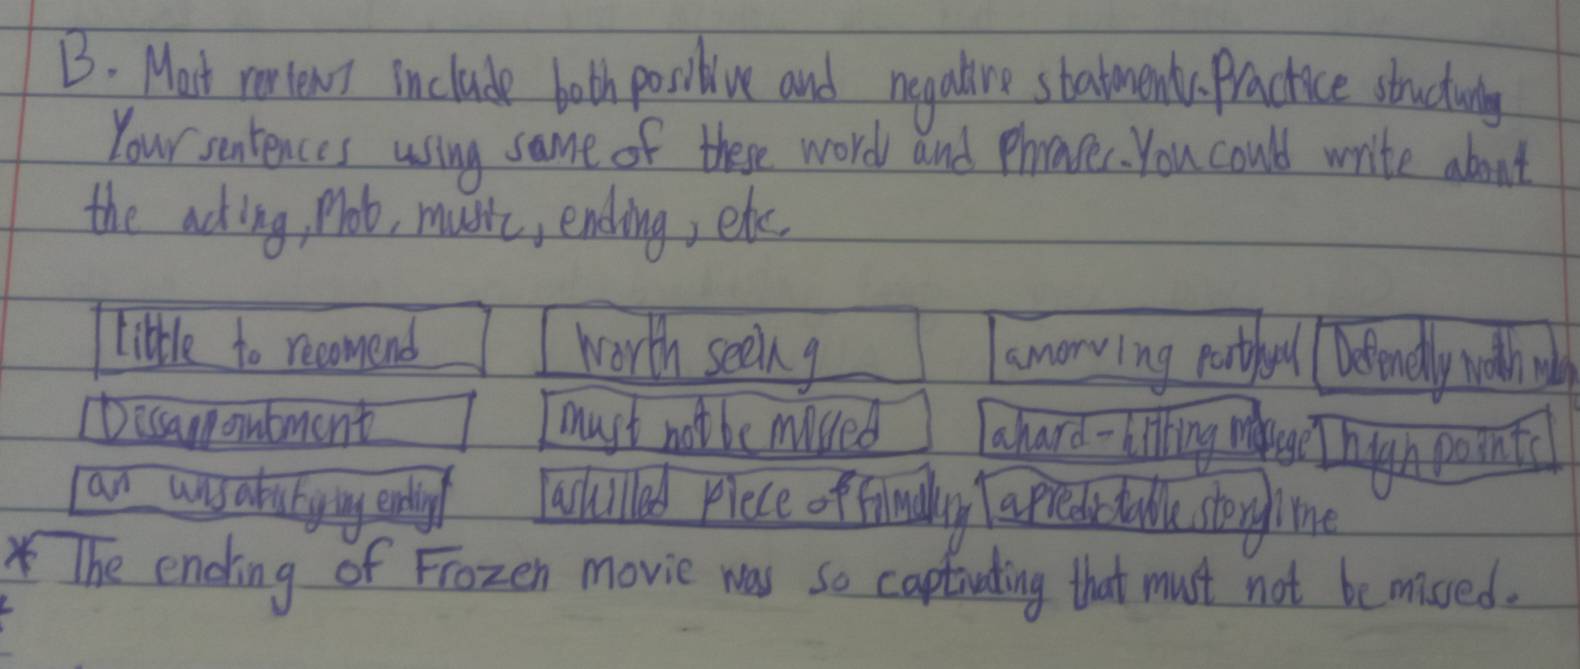 B. Most reviews include both positive and negative statments. Practice structuring
Your sentences using same of these word and Phrases. You could write about
the acting, Plot, music, ending, etc.
Little to recomend worth seeing a moving portrayal Defenetly worth
Dissappointment must not be missed a hard-hitting message high points
an unsatisfying ending a skilled piece of filmaking a predictable storyline
* The ending of Frozen movie was so captivating that must not be missed.